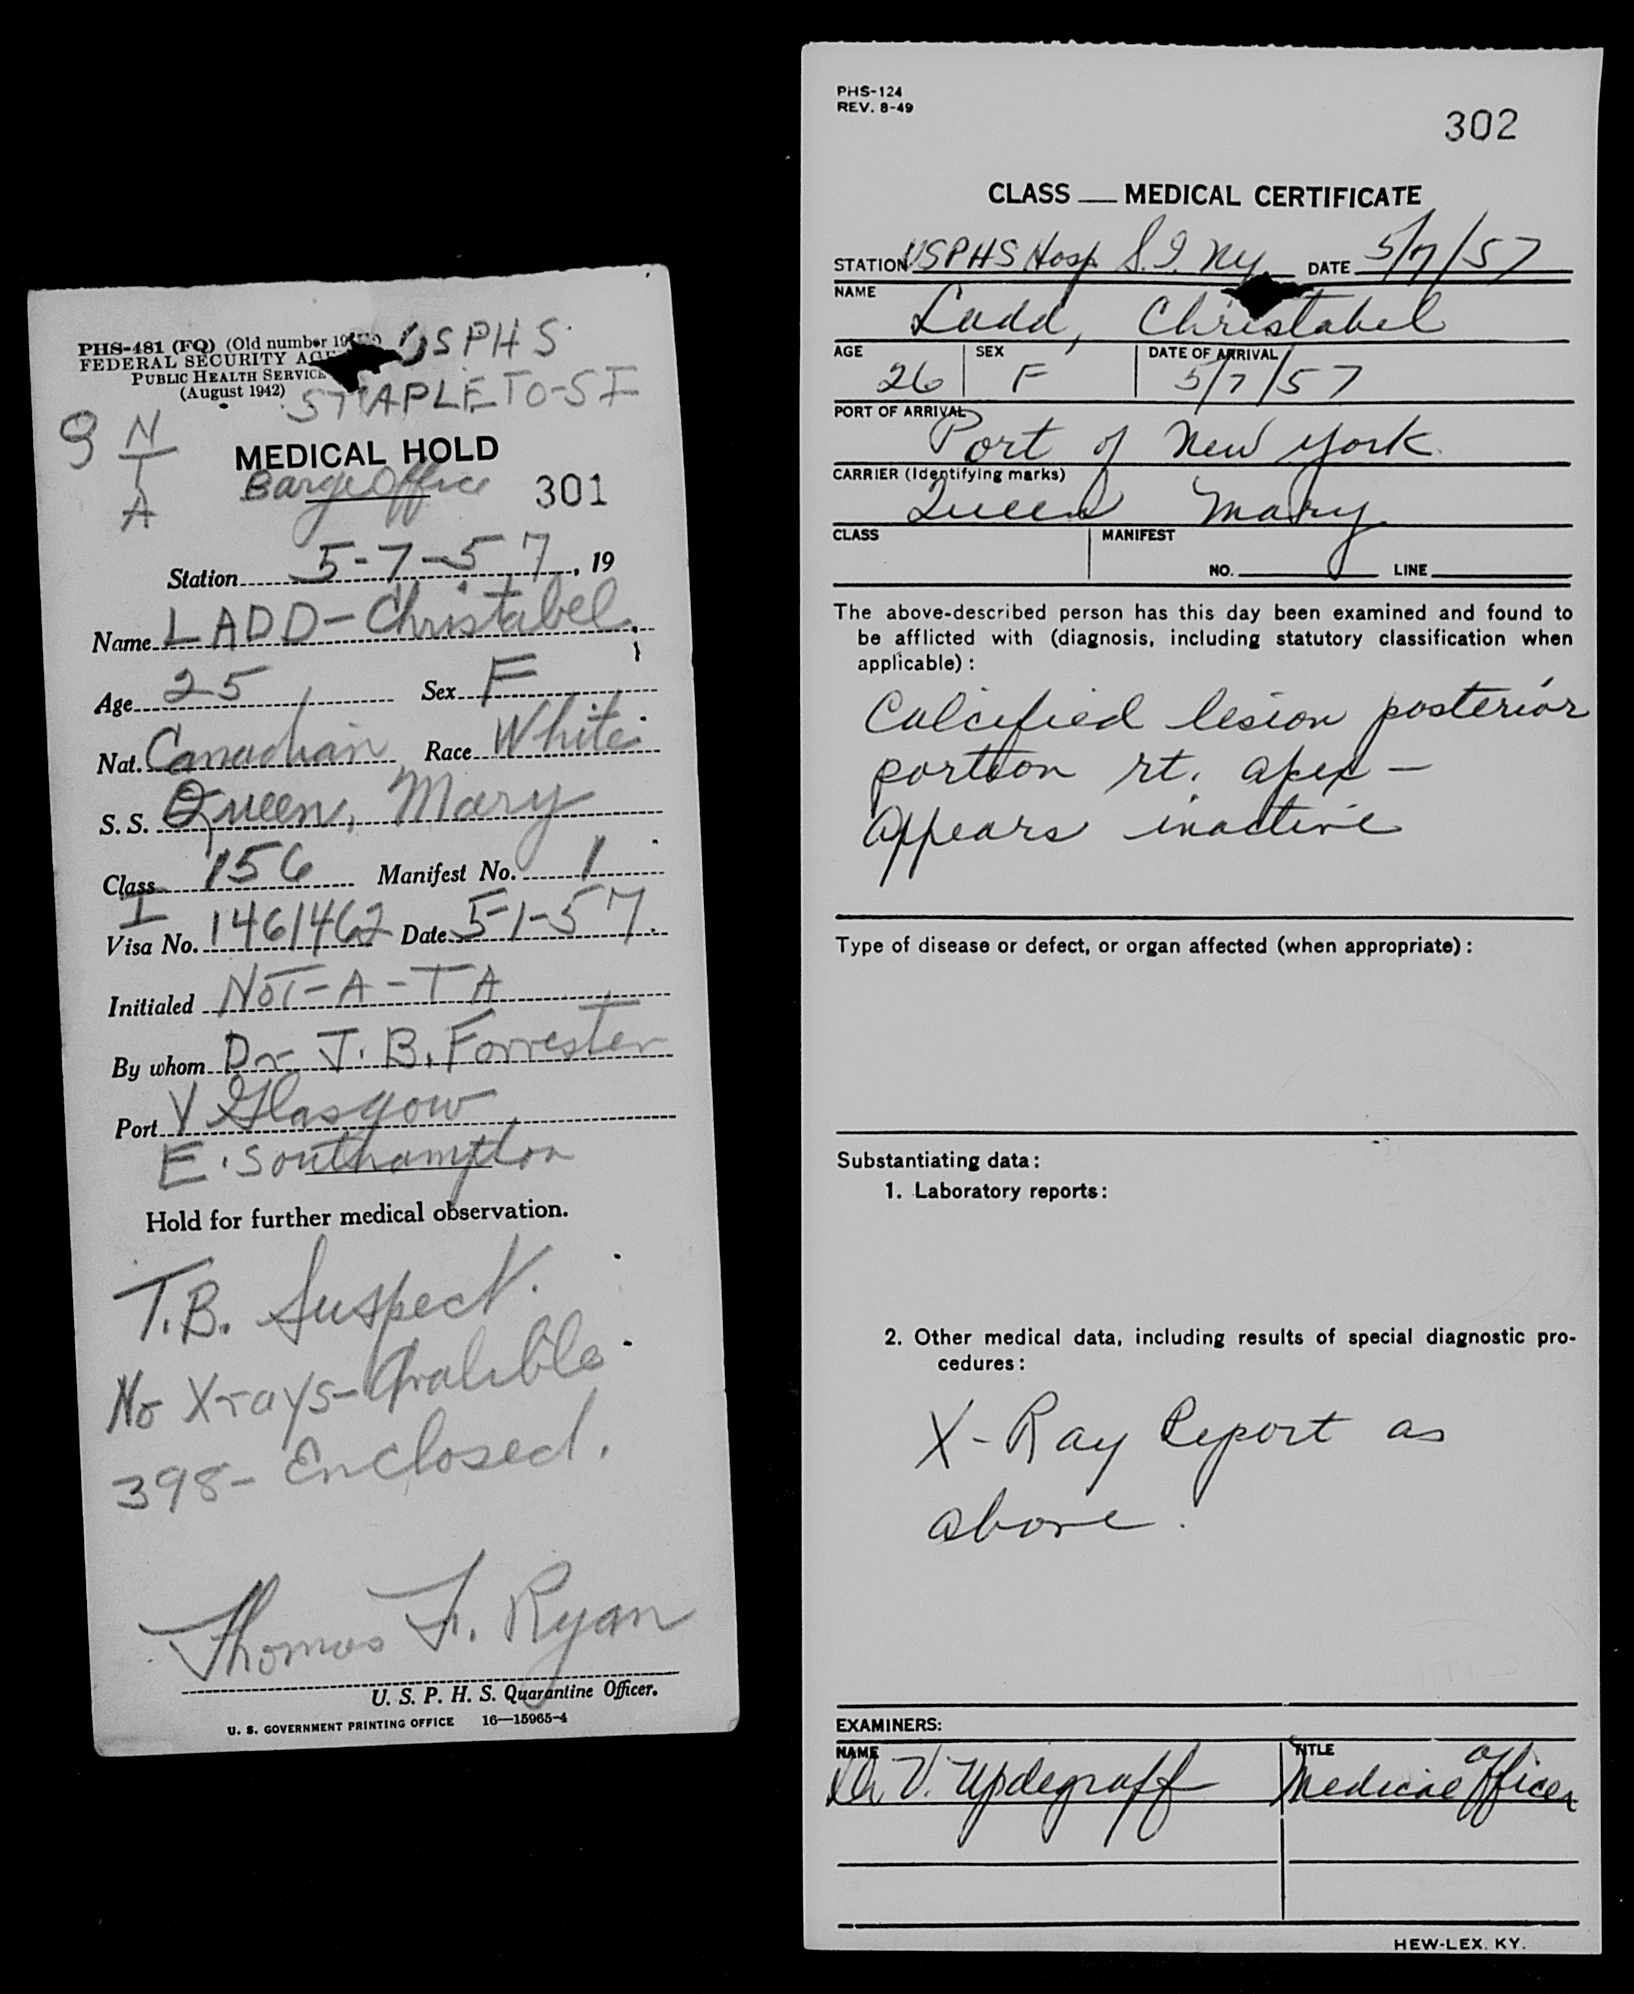 PHS-481 (FQ) (Old number 19
FEDERAL SECURITY AGE
PUBLIC HEALTH SERVICE
(August 1942)
USPHS
STAPLETO-SI
9 N
T
A
MEDICAL HOLD
Barge Office 301
Station 5-7-57, 19
Name LADD-Christabel
Age 25 Sex F
Nat. Canadian Race White
S. S. Queen, Mary
Class 156 Manifest No. 1
I
Visa No. 1461462 Date 5-1-57.
Initialed NOT-A-TA
By whom Dr J. B. Forrester
Port V Glasgow
E. Southampton
Hold for further medical observation.
T.B. Suspect.
No X-rays-Avalible.
398- Enclosed.
Thomas F. Ryan
U. S. P. H. S. Quarantine Officer.
U. S. GOVERNMENT PRINTING OFFICE 16—15965-4
PHS-124
REV. 8-49
302
CLASS __ MEDICAL CERTIFICATE
STATION USPHS Hosp. S.I. Ny DATE 5/7/57
NAME
Ladd, Christabel
AGE SEX DATE OF ARRIVAL
26 F 5/7/57
PORT OF ARRIVAL
Port of New York
CARRIER (Identifying marks)
Queen Mary
CLASS MANIFEST
NO. LINE
The above-described person has this day been examined and found to
be afflicted with (diagnosis, including statutory classification when
applicable):
Calcified lesion posterior
portion rt. apex —
Appears inactive
Type of disease or defect, or organ affected (when appropriate):
Substantiating data:
1. Laboratory reports:
2. Other medical data, including results of special diagnostic pro-
cedures:
X-Ray Report as
above.
EXAMINERS:
NAME TITLE
Dr V. Updegraff Medical Officer
HEW-LEX. KY.